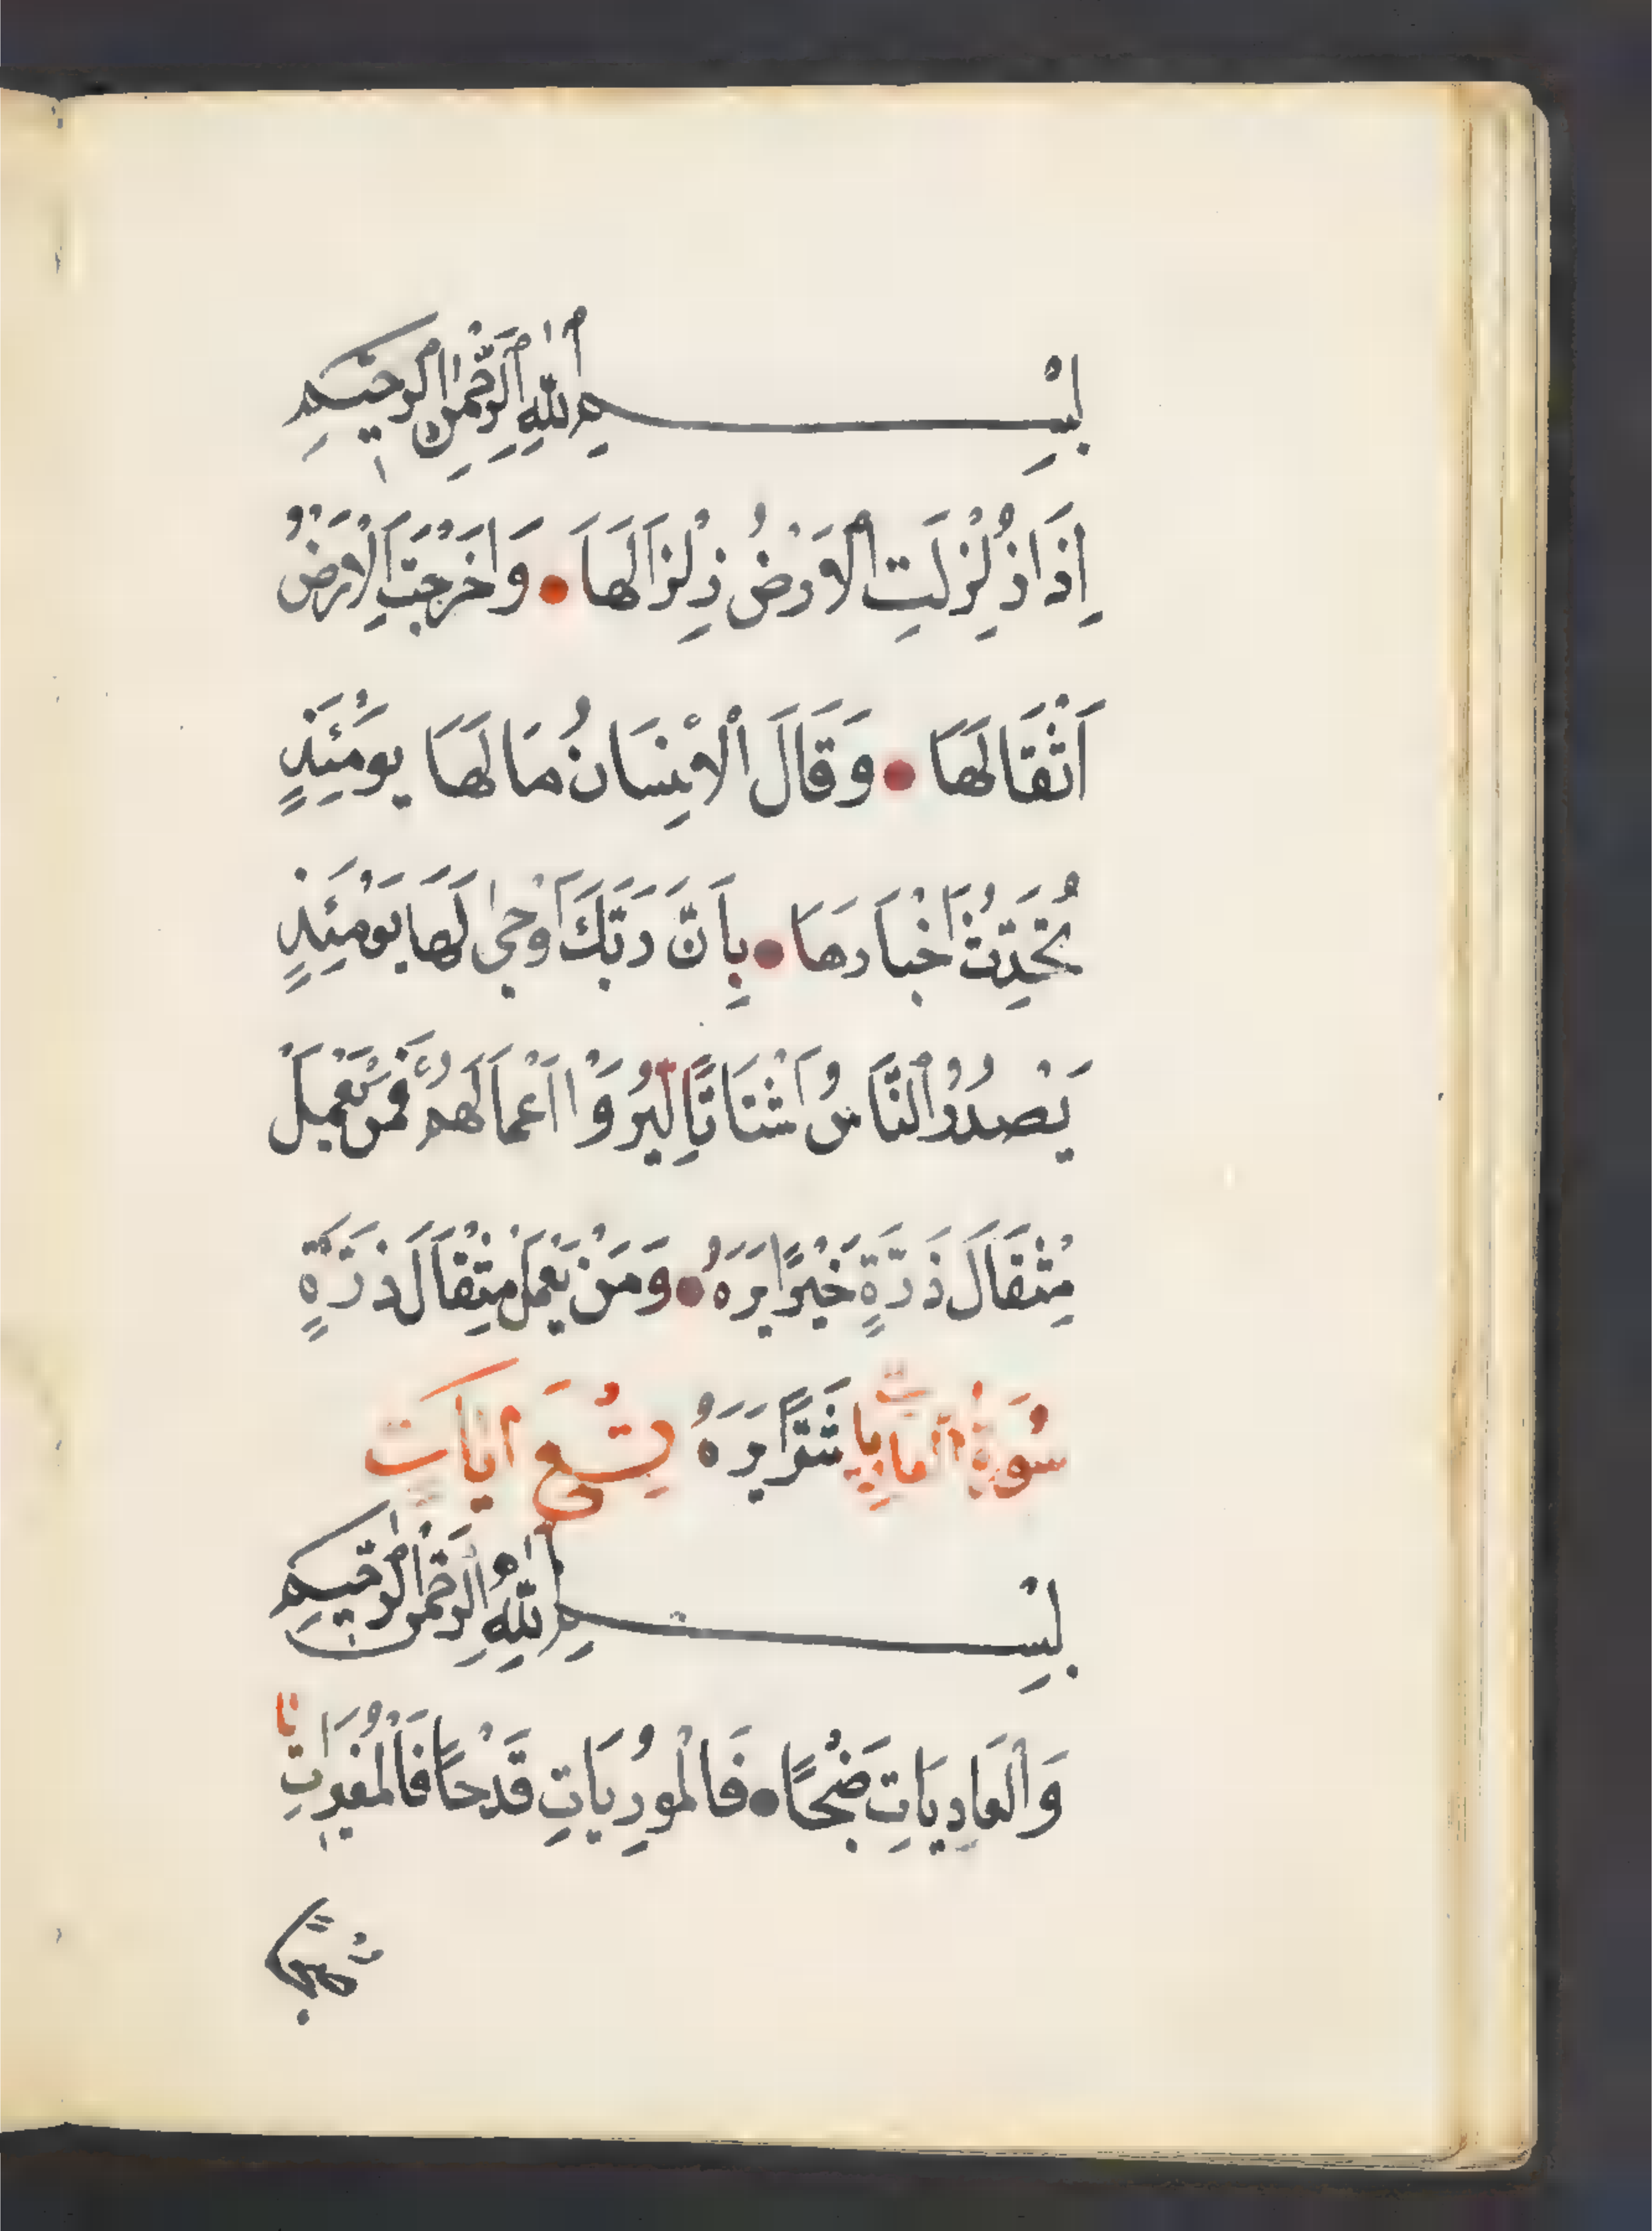 بِسْمِ اللّٰهِ الرَّحْمٰنِ الرَّحِيمِ
اِذَا زُلْزِلَتِ الْاَرْضُ زِلْزَالَهَا • وَاَخْرَجَتِ الْاَرْضُ
اَثْقَالَهَا • وَقَالَ الْاِنْسَانُ مَا لَهَا يَوْمَئِذٍ
تُحَدِّثُ اَخْبَارَهَا • بِاَنَّ رَبَّكَ اَوْحٰى لَهَا يَوْمَئِذٍ
يَصْدُرُ النَّاسُ اَشْتَاتًا لِيُرَوْا اَعْمَالَهُمْ فَمَنْ يَعْمَلْ
مِثْقَالَ ذَرَّةٍ خَيْرًا يَرَهُ • وَمَنْ يَعْمَلْ مِثْقَالَ ذَرَّةٍ
سُورَةُ شَرًّا يَرَهُ تِسْعَ اٰيَات
بِسْمِ اللّٰهِ الرَّحْمٰنِ الرَّحِيمِ
وَالْعَادِيَاتِ ضَبْحًا • فَالْمُورِيَاتِ قَدْحًا فَالْمُغِيرَاتِ
صُبْحًا